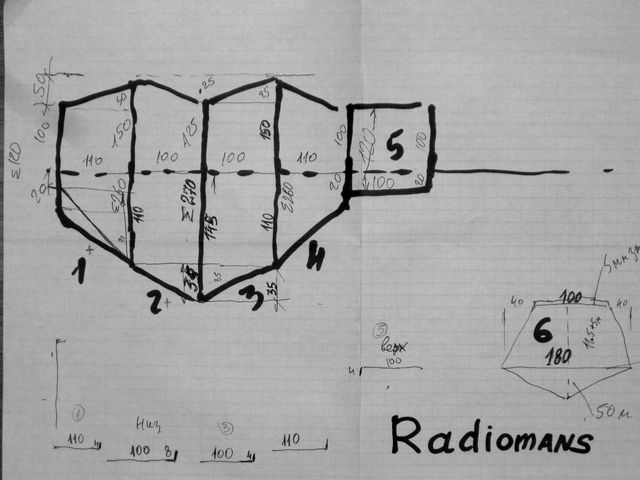 50
25
50
25
100
150
125
150
100
120
100
5
Σ120
110
100
100
110
20
20
100
20
Σ270
Σ260
110
145
110
1
2
3
4
35
35
35
40
100
40
6
180
50м
5
верх
100
4
1
Низ
3
110 4
100 8
100 4
110
Radiomans